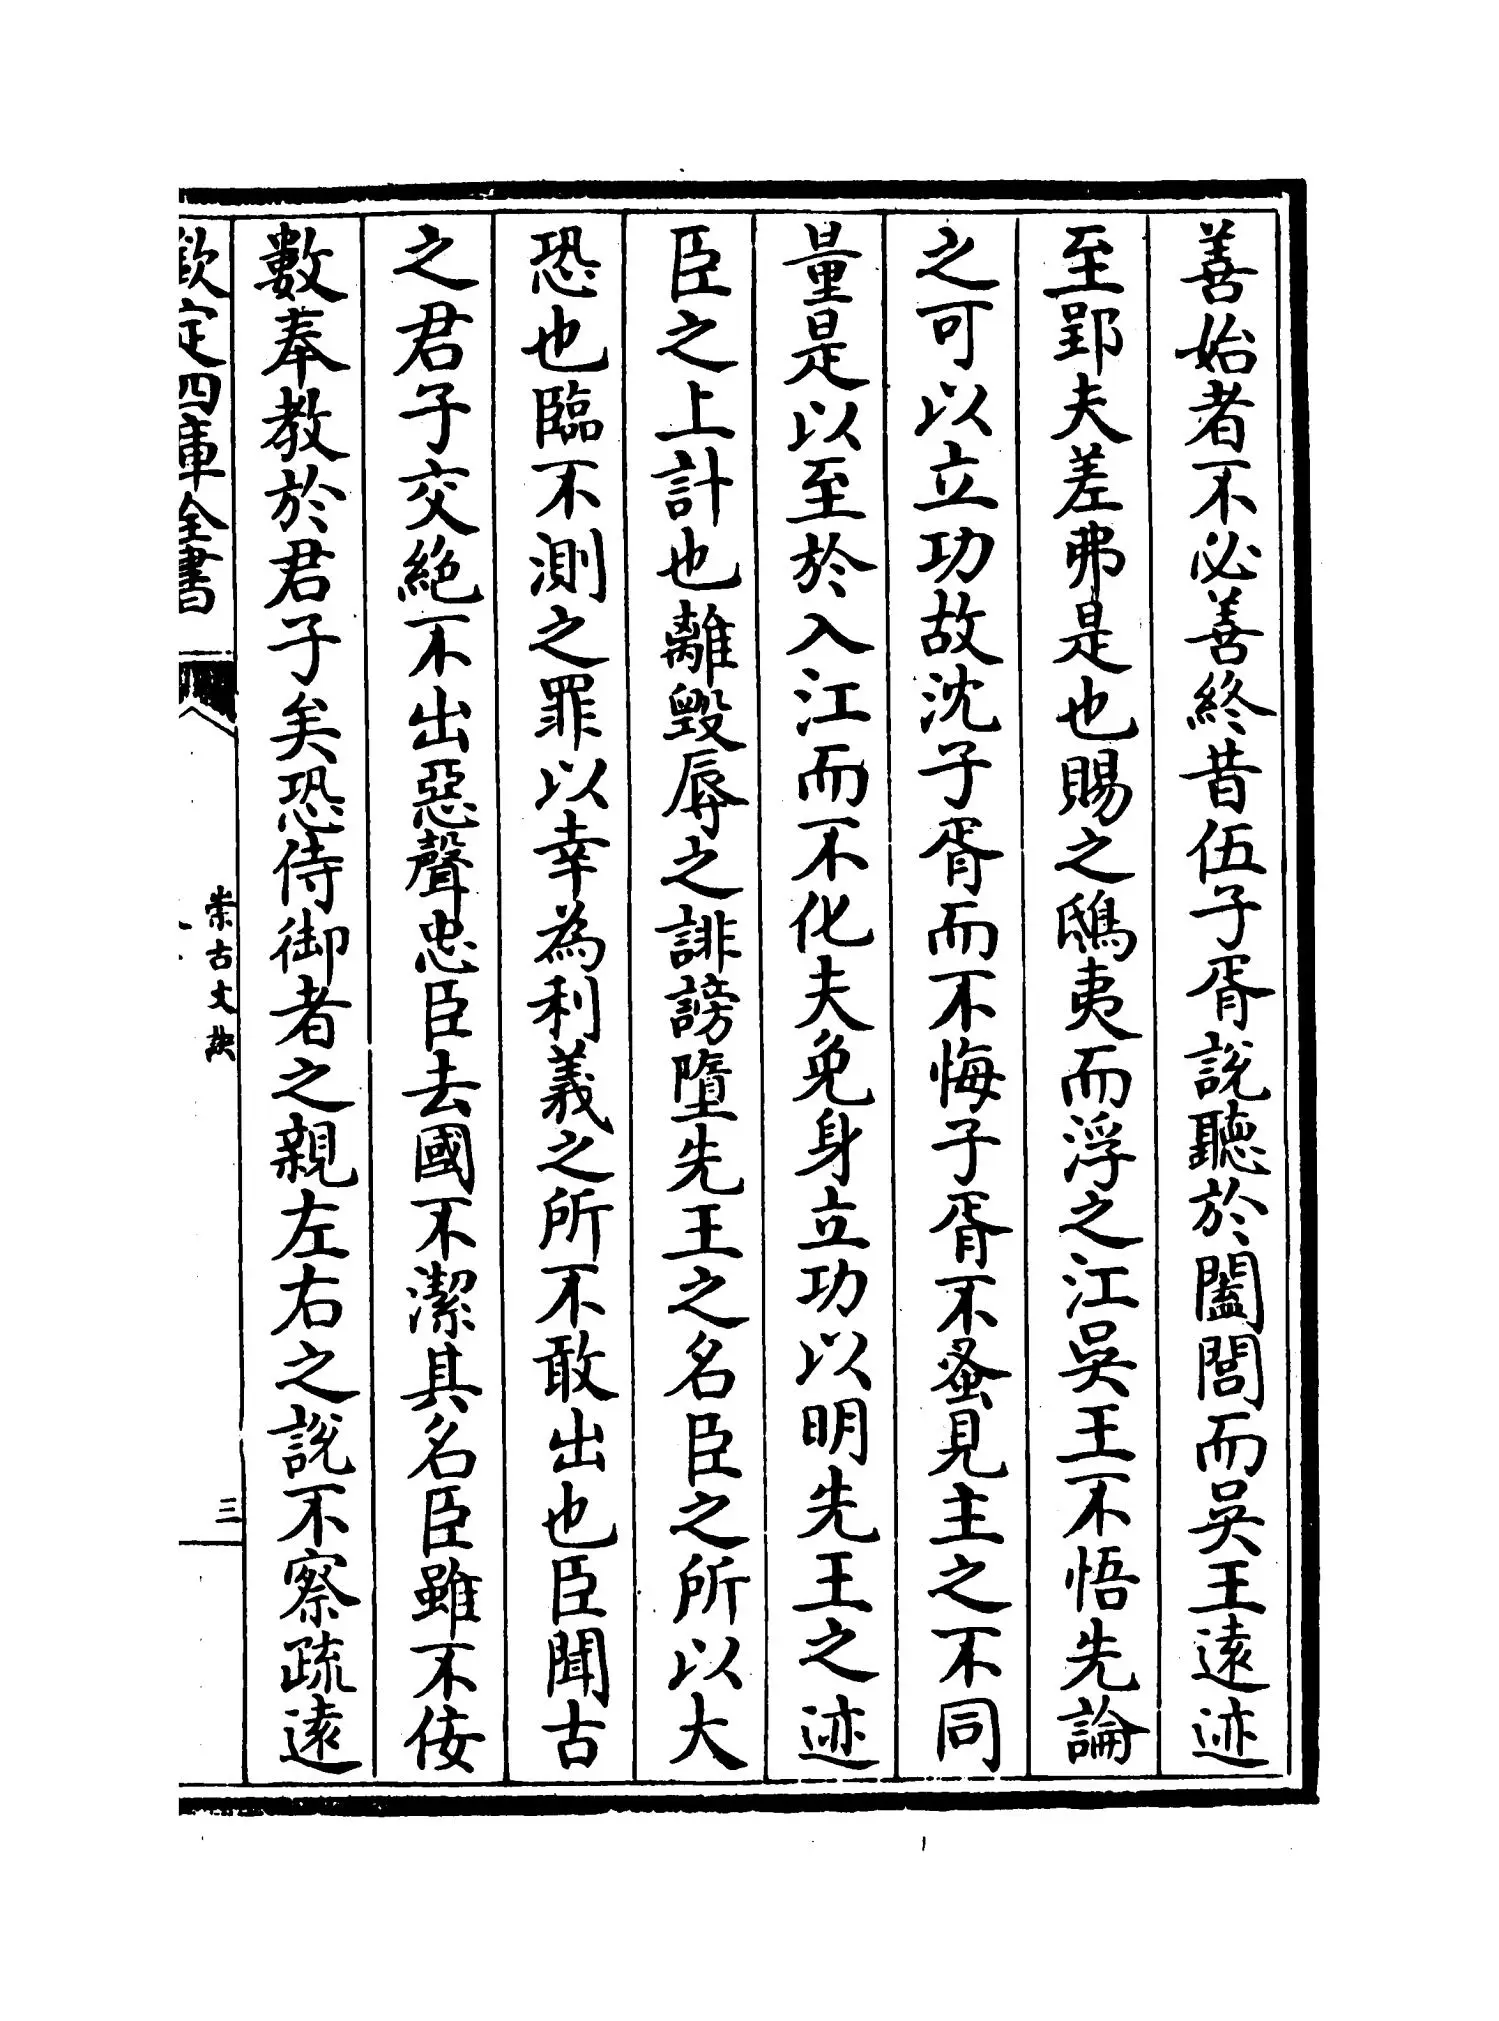 善始者不必善終昔伍子胥說聽於闔閭而吳王逺迹
至郢夫差弗是也賜之鴟夷而浮之江吳王不悟先論
之可以立功故沈子胥而不悔子胥不蚤見主之不同
量是以至於入江而不化夫免身立功以明先王之迹
臣之上計也離毀辱之誹謗墮先王之名臣之所以大
恐也臨不測之罪以幸為利義之所不敢出也臣聞古
之君子交絶不出惡聲忠臣去國不潔其名臣雖不佞
數奉教於君子矣恐侍御者之親左右之說不察疏逺
欽定四庫全書
崇古文訣
三